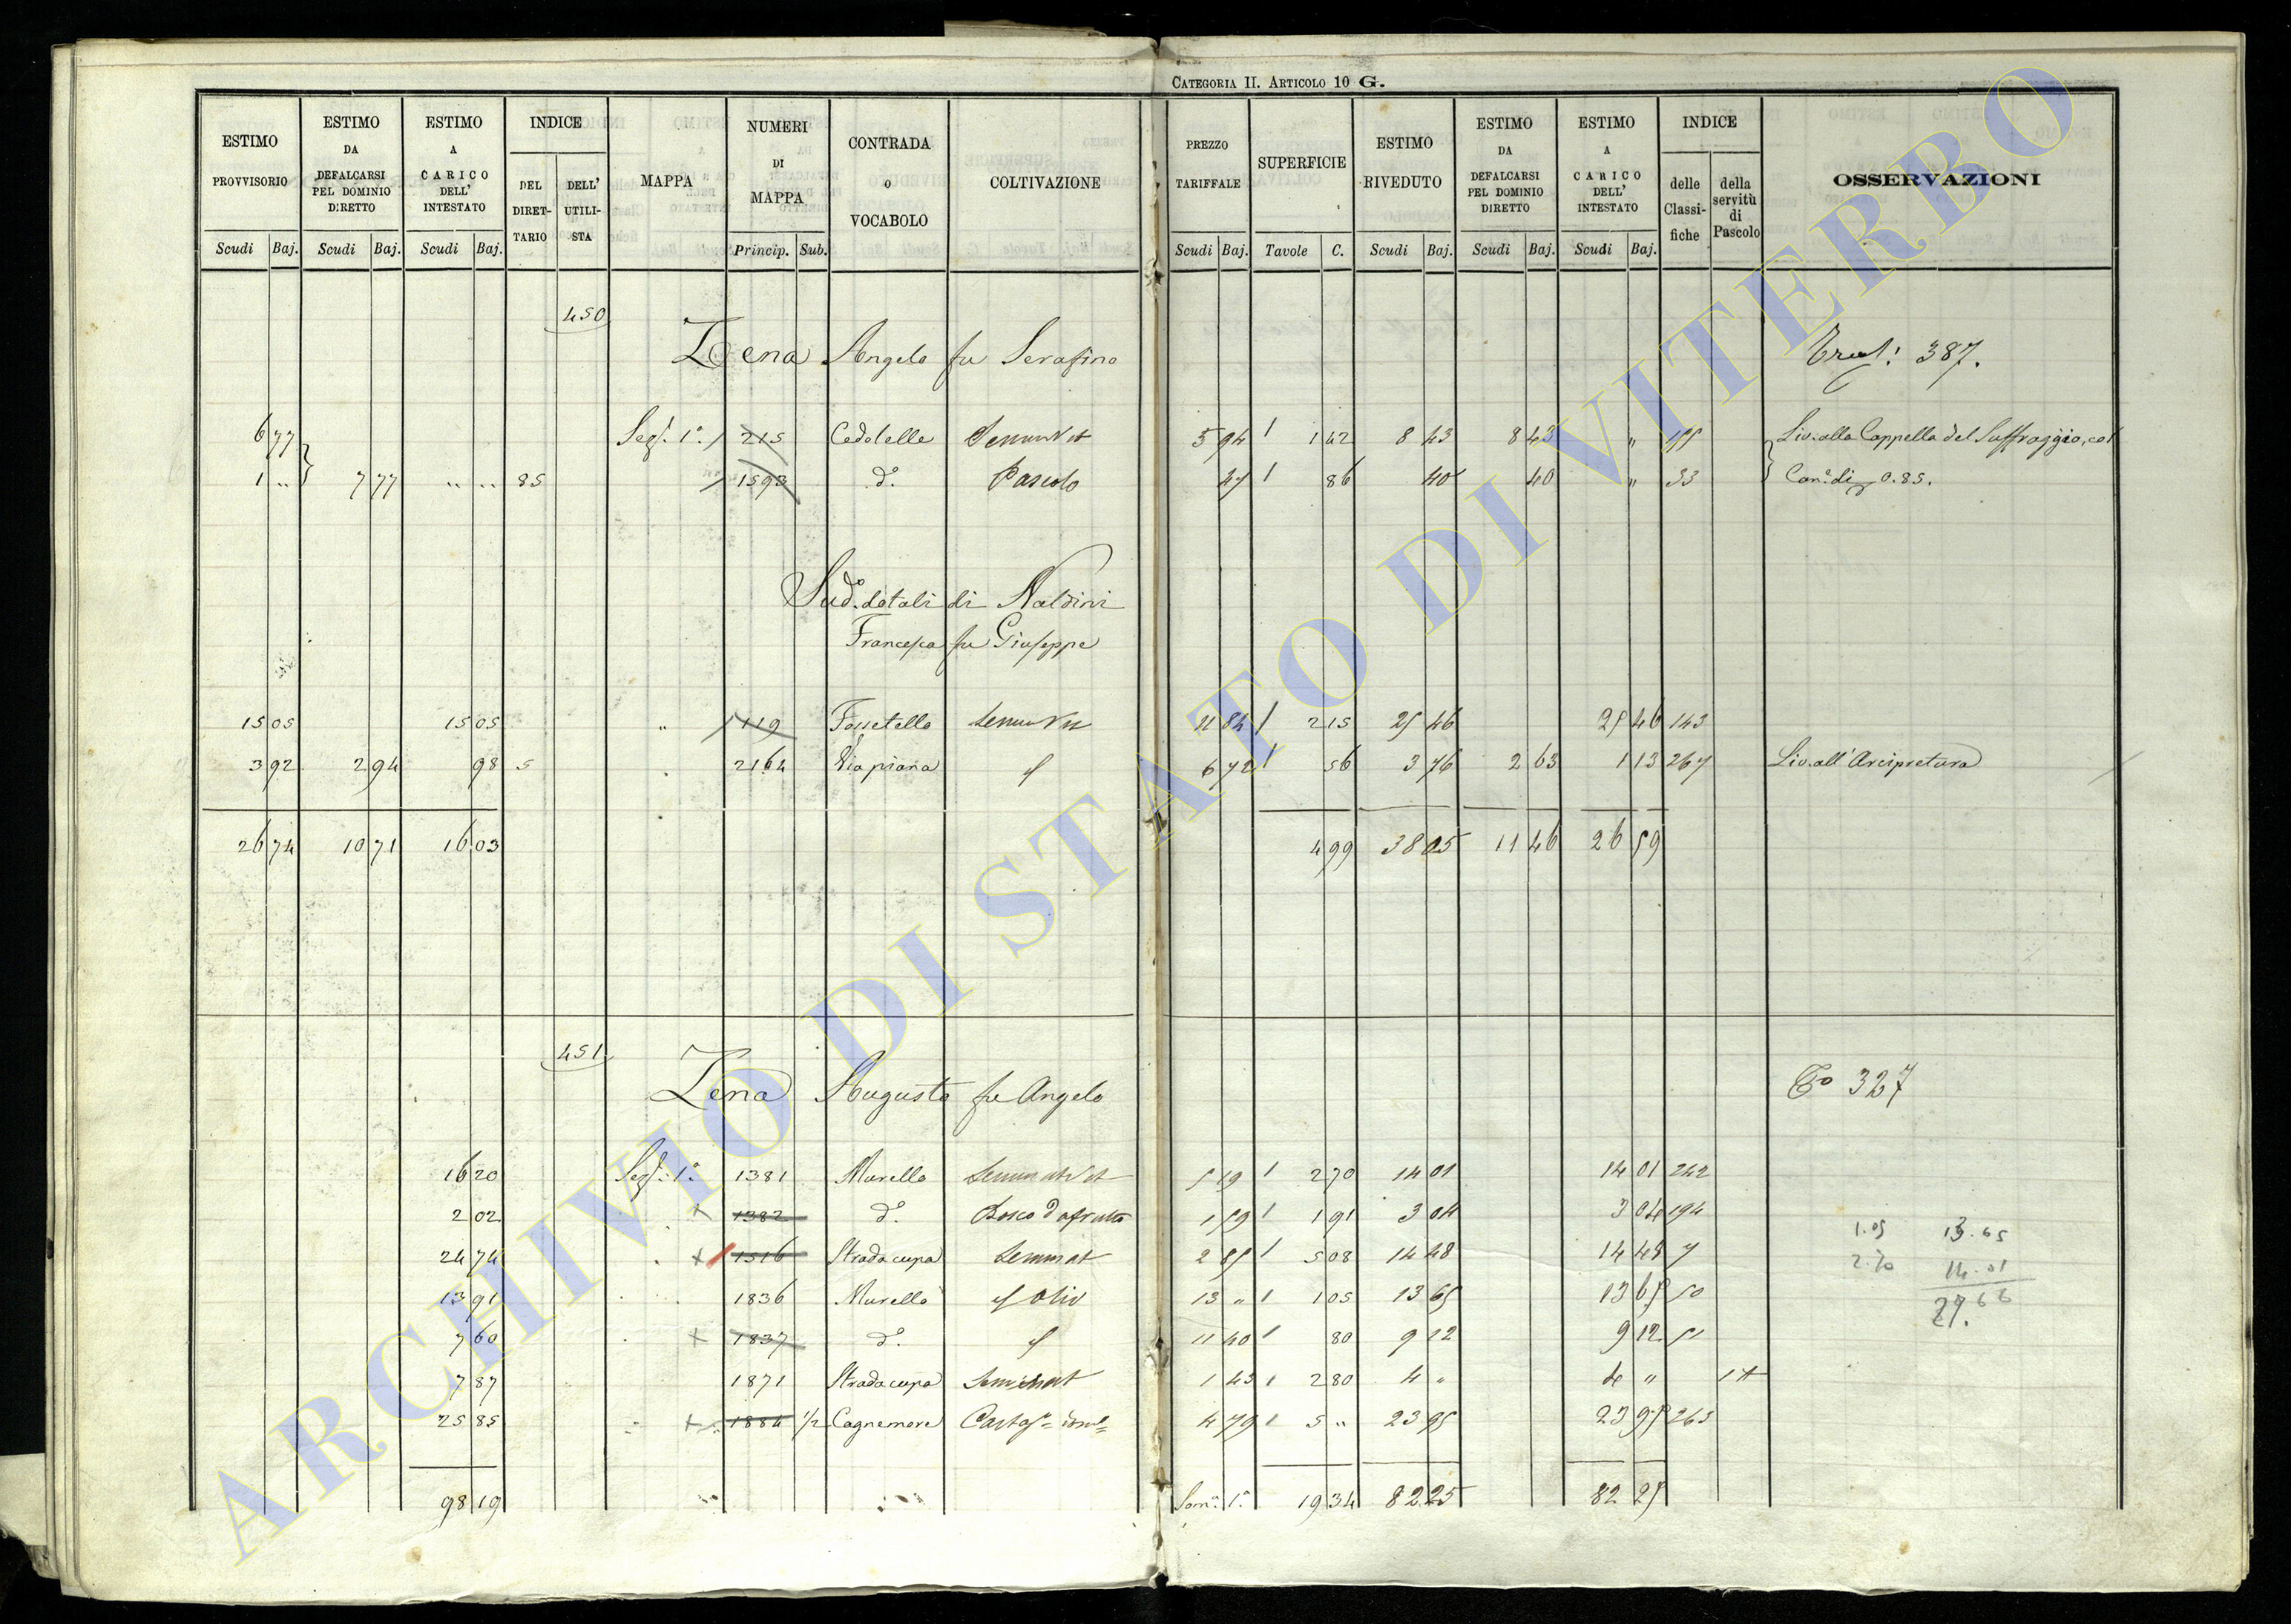 CATEGORIA II. ARTICOLO 10 G.
ESTIMO PROVVISORIO | ESTIMO DA DEFALCARSI PEL DOMINIO DIRETTO | ESTIMO A CARICO DELL' INTESTATO | INDICE DEL DIRETTARIO | DELL' UTILISTA | MAPPA | NUMERI DI MAPPA | CONTRADA O VOCABOLO | COLTIVAZIONE | PREZZO TARIFFALE | SUPERFICIE | ESTIMO RIVEDUTO | ESTIMO DA DEFALCARSI PEL DOMINIO DIRETTO | ESTIMO A CARICO DELL' INTESTATO | INDICE delle Classifiche | della servitù di Pascolo | OSSERVAZIONI
Scudi Baj. Scudi Baj. Scudi Baj. Princip. Sub. Scudi Baj. Tavole C. Scudi Baj. Scudi Baj. Scudi Baj.
450
Zena Angelo fu Serafino
387.
6 77 Sez. 1a. 215 Cedolelle 5 94 1 42 8 43 8 43 " Liv. alla Cappella del Suffraggio, col
1 " 7 77 " " 85 1593 do. Pascolo 47 86 40 40 " 33 Can. di 0.85.
Sudo. dotali di Naldini
Francesca fu Giuseppe
15 05 15 05 " 119 Fossetello 11 84 2 15 25 46 25 46 143
3 92 2 94 98 5 2164 Via piana 6 72 56 3 76 2 63 1 13 267 Liv. all'Arcipretura
26 74 10 71 16 03 4 99 38 05 11 46 26 59
451
Zena Augusto fu Angelo
To 327
16 20 Sez. 1a 1381 Murello 5 19 2 70 14 01 14 01 242
2 02 + 1382 do. Bosco da frutto 1 59 1 91 3 04 3 04 194
24 74 + 1516 Strada cupa Seminat 2 85 5 08 14 48 14 48 7
13 91 1836 Murello Oliv 13 " 1 05 13 65 13 65 50
7 60 + 1837 do. 11 40 80 9 12 9 12 51
7 87 1871 Strada cupa Seminat 1 43 2 80 4 " 4 "
25 85 + 1884 1/2 Cagnemore 4 79 5 " 23 95 23 95 263
1.05 13.65
2.70 14.01
27.66
98 19 Som. 1a 19 34 82 25 82 25
ARCHIVIO DI STATO DI VITERBO